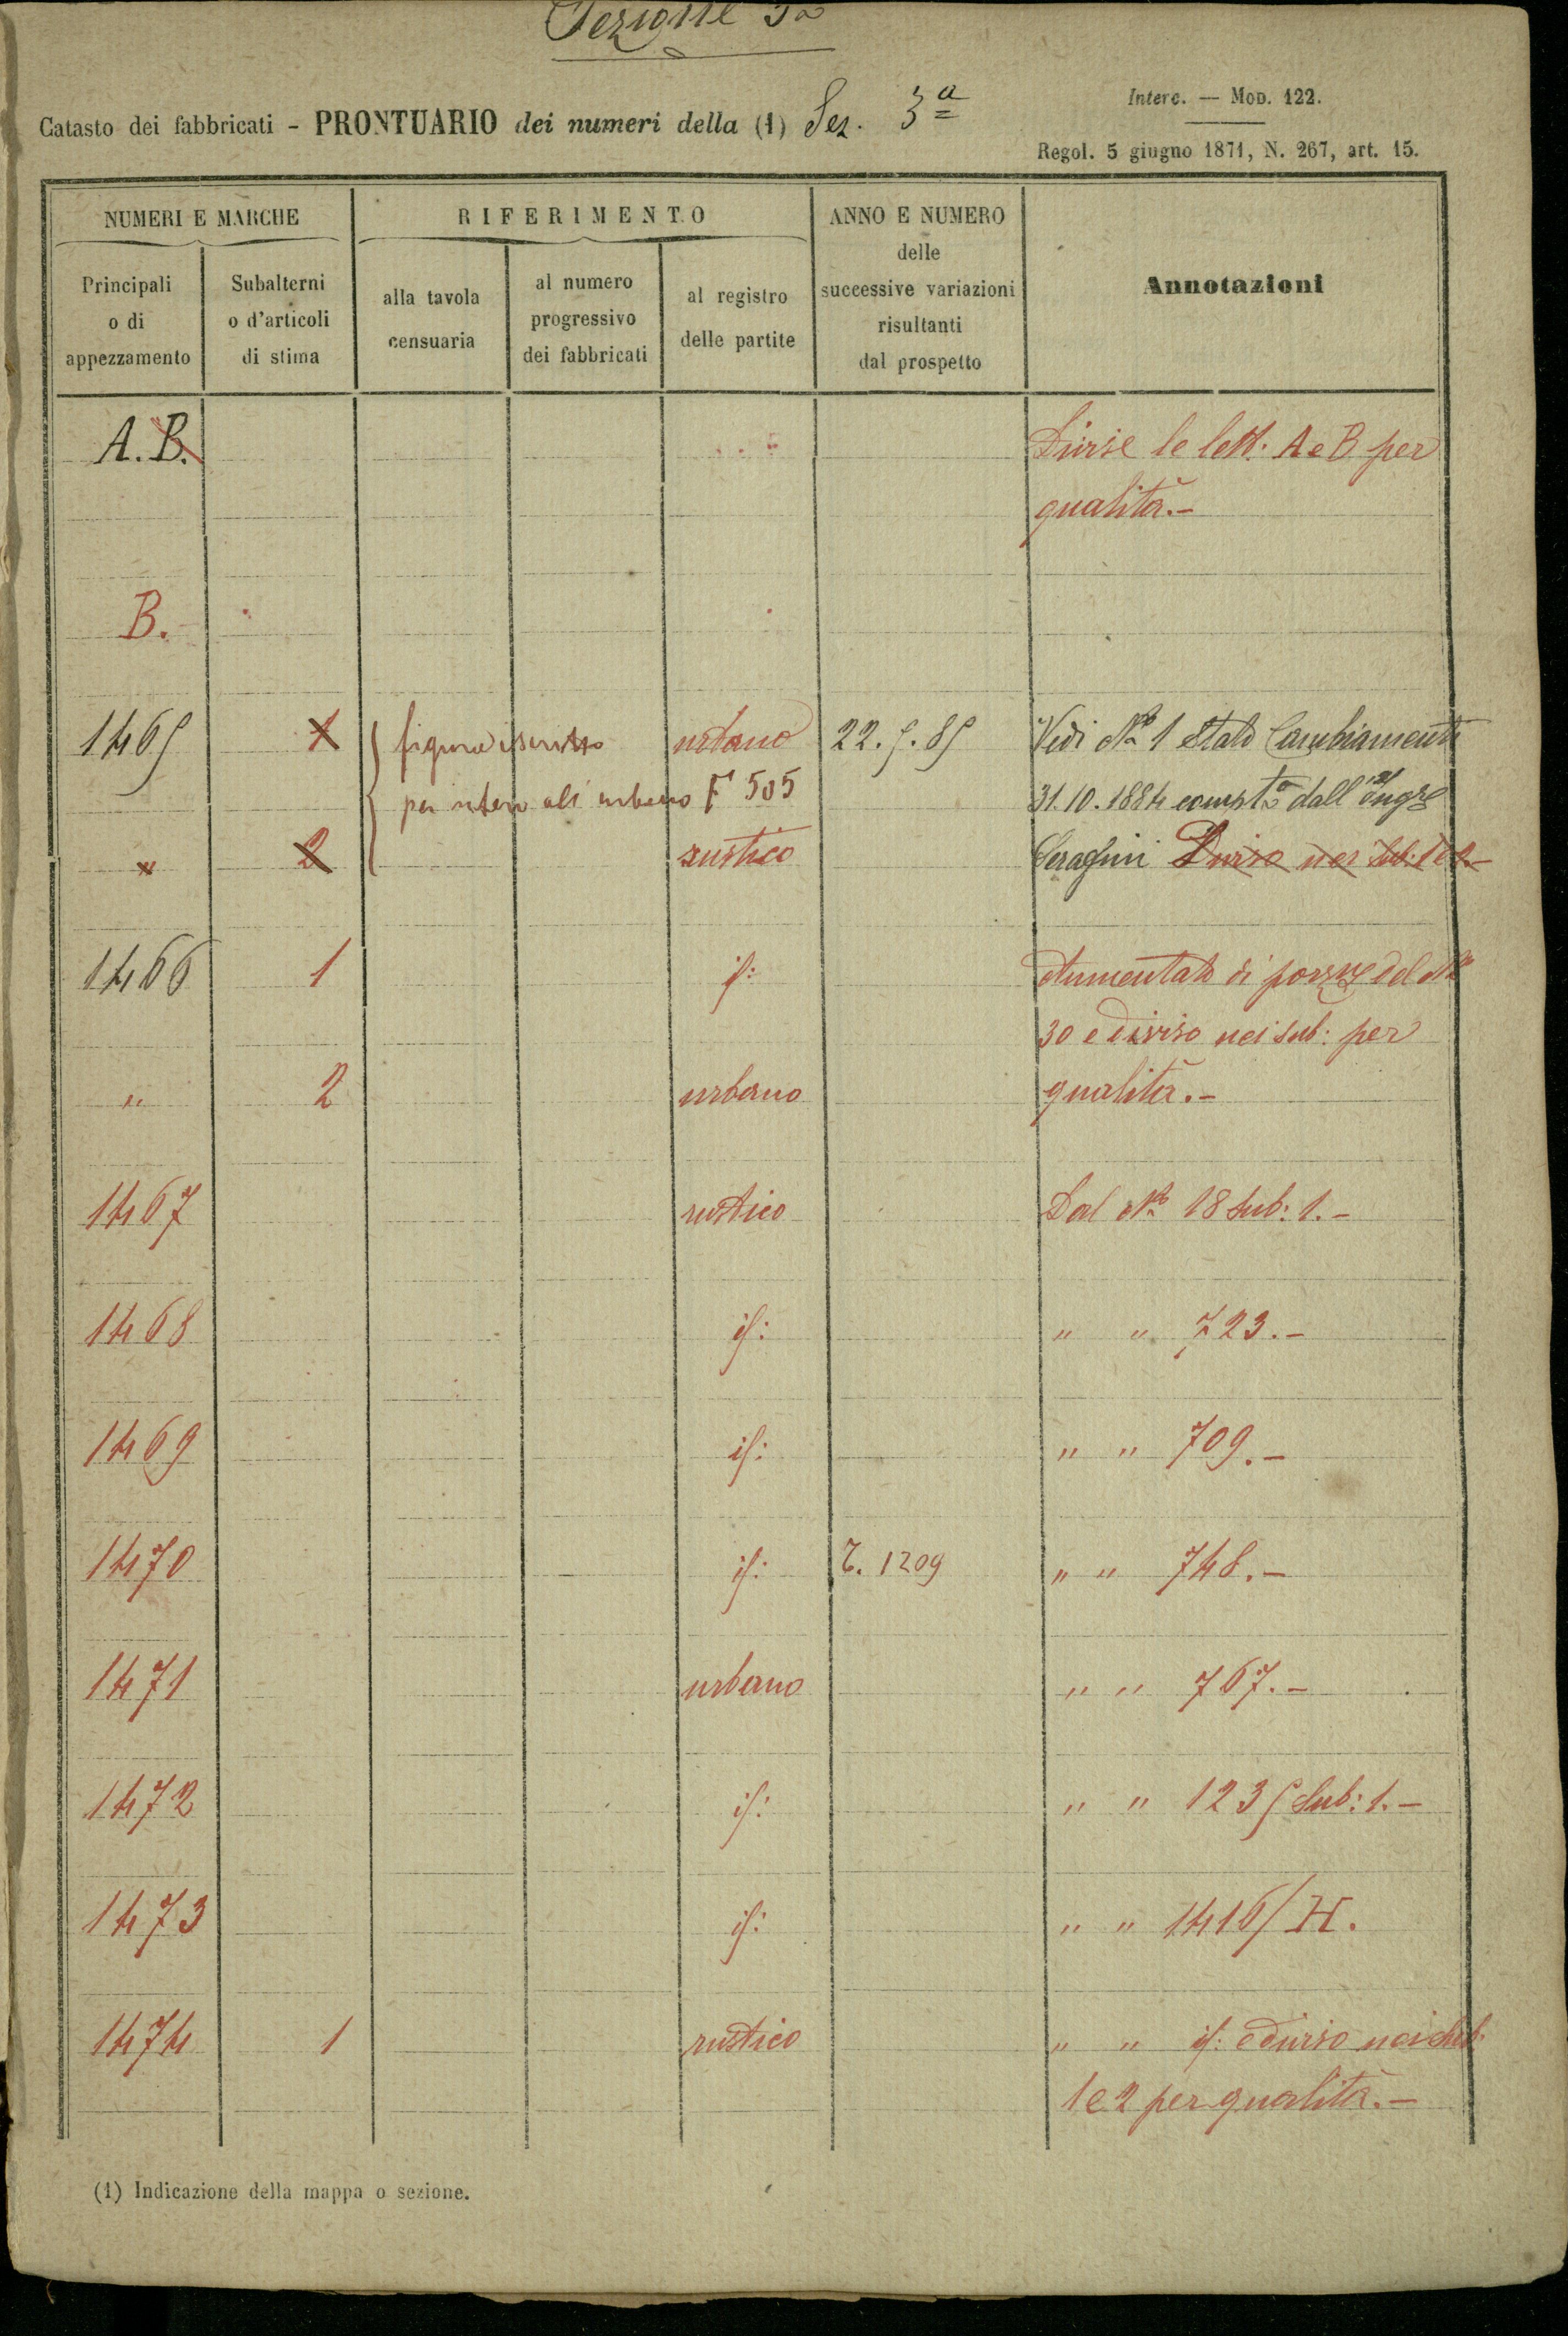 Sezione 3a
Catasto dei fabbricati - PRONTUARIO dei numeri della (1) Sez. 3a
Interc. — Mod. 122.
Regol. 5 giugno 1871, N. 267, art. 15.
NUMERI E MARCHE
RIFERIMENTO
ANNO E NUMERO
delle
successive variazioni
risultanti
dal prospetto
Annotazioni
Principali
o di
appezzamento
Subalterni
o d'articoli
di stima
alla tavola
censuaria
al numero
progressivo
dei fabbricati
al registro
delle partite
A. B. Divise le lett. A e B per
qualità.-
B.
1465 1 figura iscritto urbano 22.5.85 Vedi No 1 Stato Cambiamenti
per intero all'urbano F 505 31.10.1884 dall'Ingre
" 2 rustico Serafini Diviso nei Sub: 1 e 2.-
1466 1 id: Aumentato di porzne del No
30 e diviso nei sub: per
" 2 urbano qualità.-
1467 rustico Dal No 18 sub: 1.-
1468 id: " " 723.-
1469 id: " " 709.-
1470 id: T. 1209 " " 748.-
1471 urbano " " 767.-
1472 id: " " 1235 sub: 1.-
1473 id: " " 1416/H.
1474 1 rustico " " id: e diviso nei sub:
1 e 2 per qualità.-
(1) Indicazione della mappa o sezione.